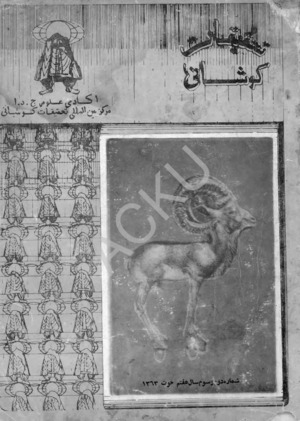 تحقیقات
کوشانی
اکادمی علوم ج . د . ا
مرکز بین المللی تحقیقات کوشانی
ACKU
شماره دوم و سوم سال هفتم حوت ۱۳۶۳